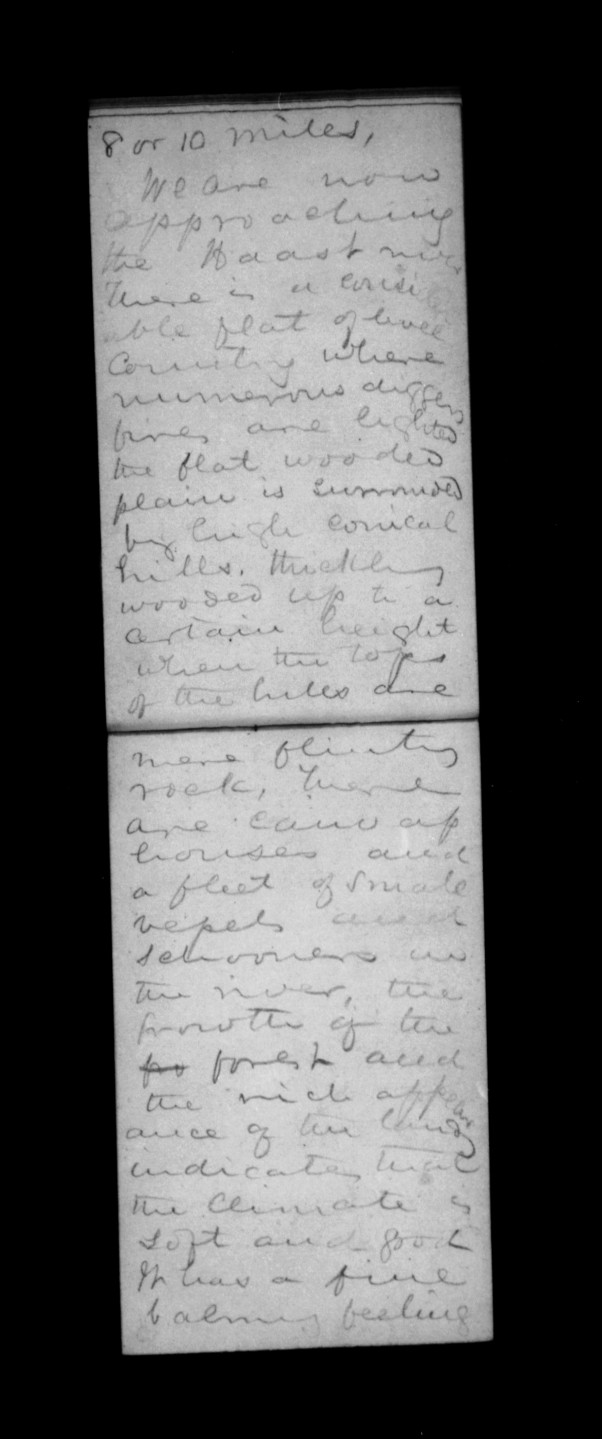 8 or 10 miles,
We are now
approaching
the Haast river
There is a consider
able flat of level
Country where
numerous diggers
fires are lighted
the flat wooded
plain is surrounded
by high conical
hills. thickly
wooded up to a
certain height
when the tops
of the hills are
mere flinty
rock, There
are canvas
houses and
a fleet of small
vessels and
schooners in
the river, the
growth of the
fo forest and
the rich appear
ance of the land
indicates that
the Climate is
soft and good
It has a fine
balmy feeling